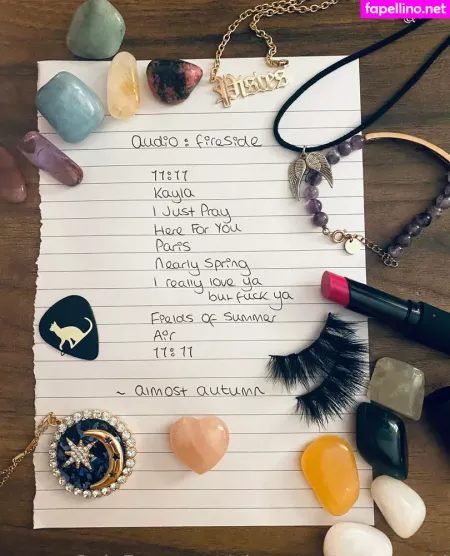 fapellino.net
Pisces
audio : fireside
11:11
Kayla
I Just Pray
Here For You
Paris
Nearly Spring
I really love ya
but fuck ya
Fields of Summer
Air
11:11
~ almost autumn